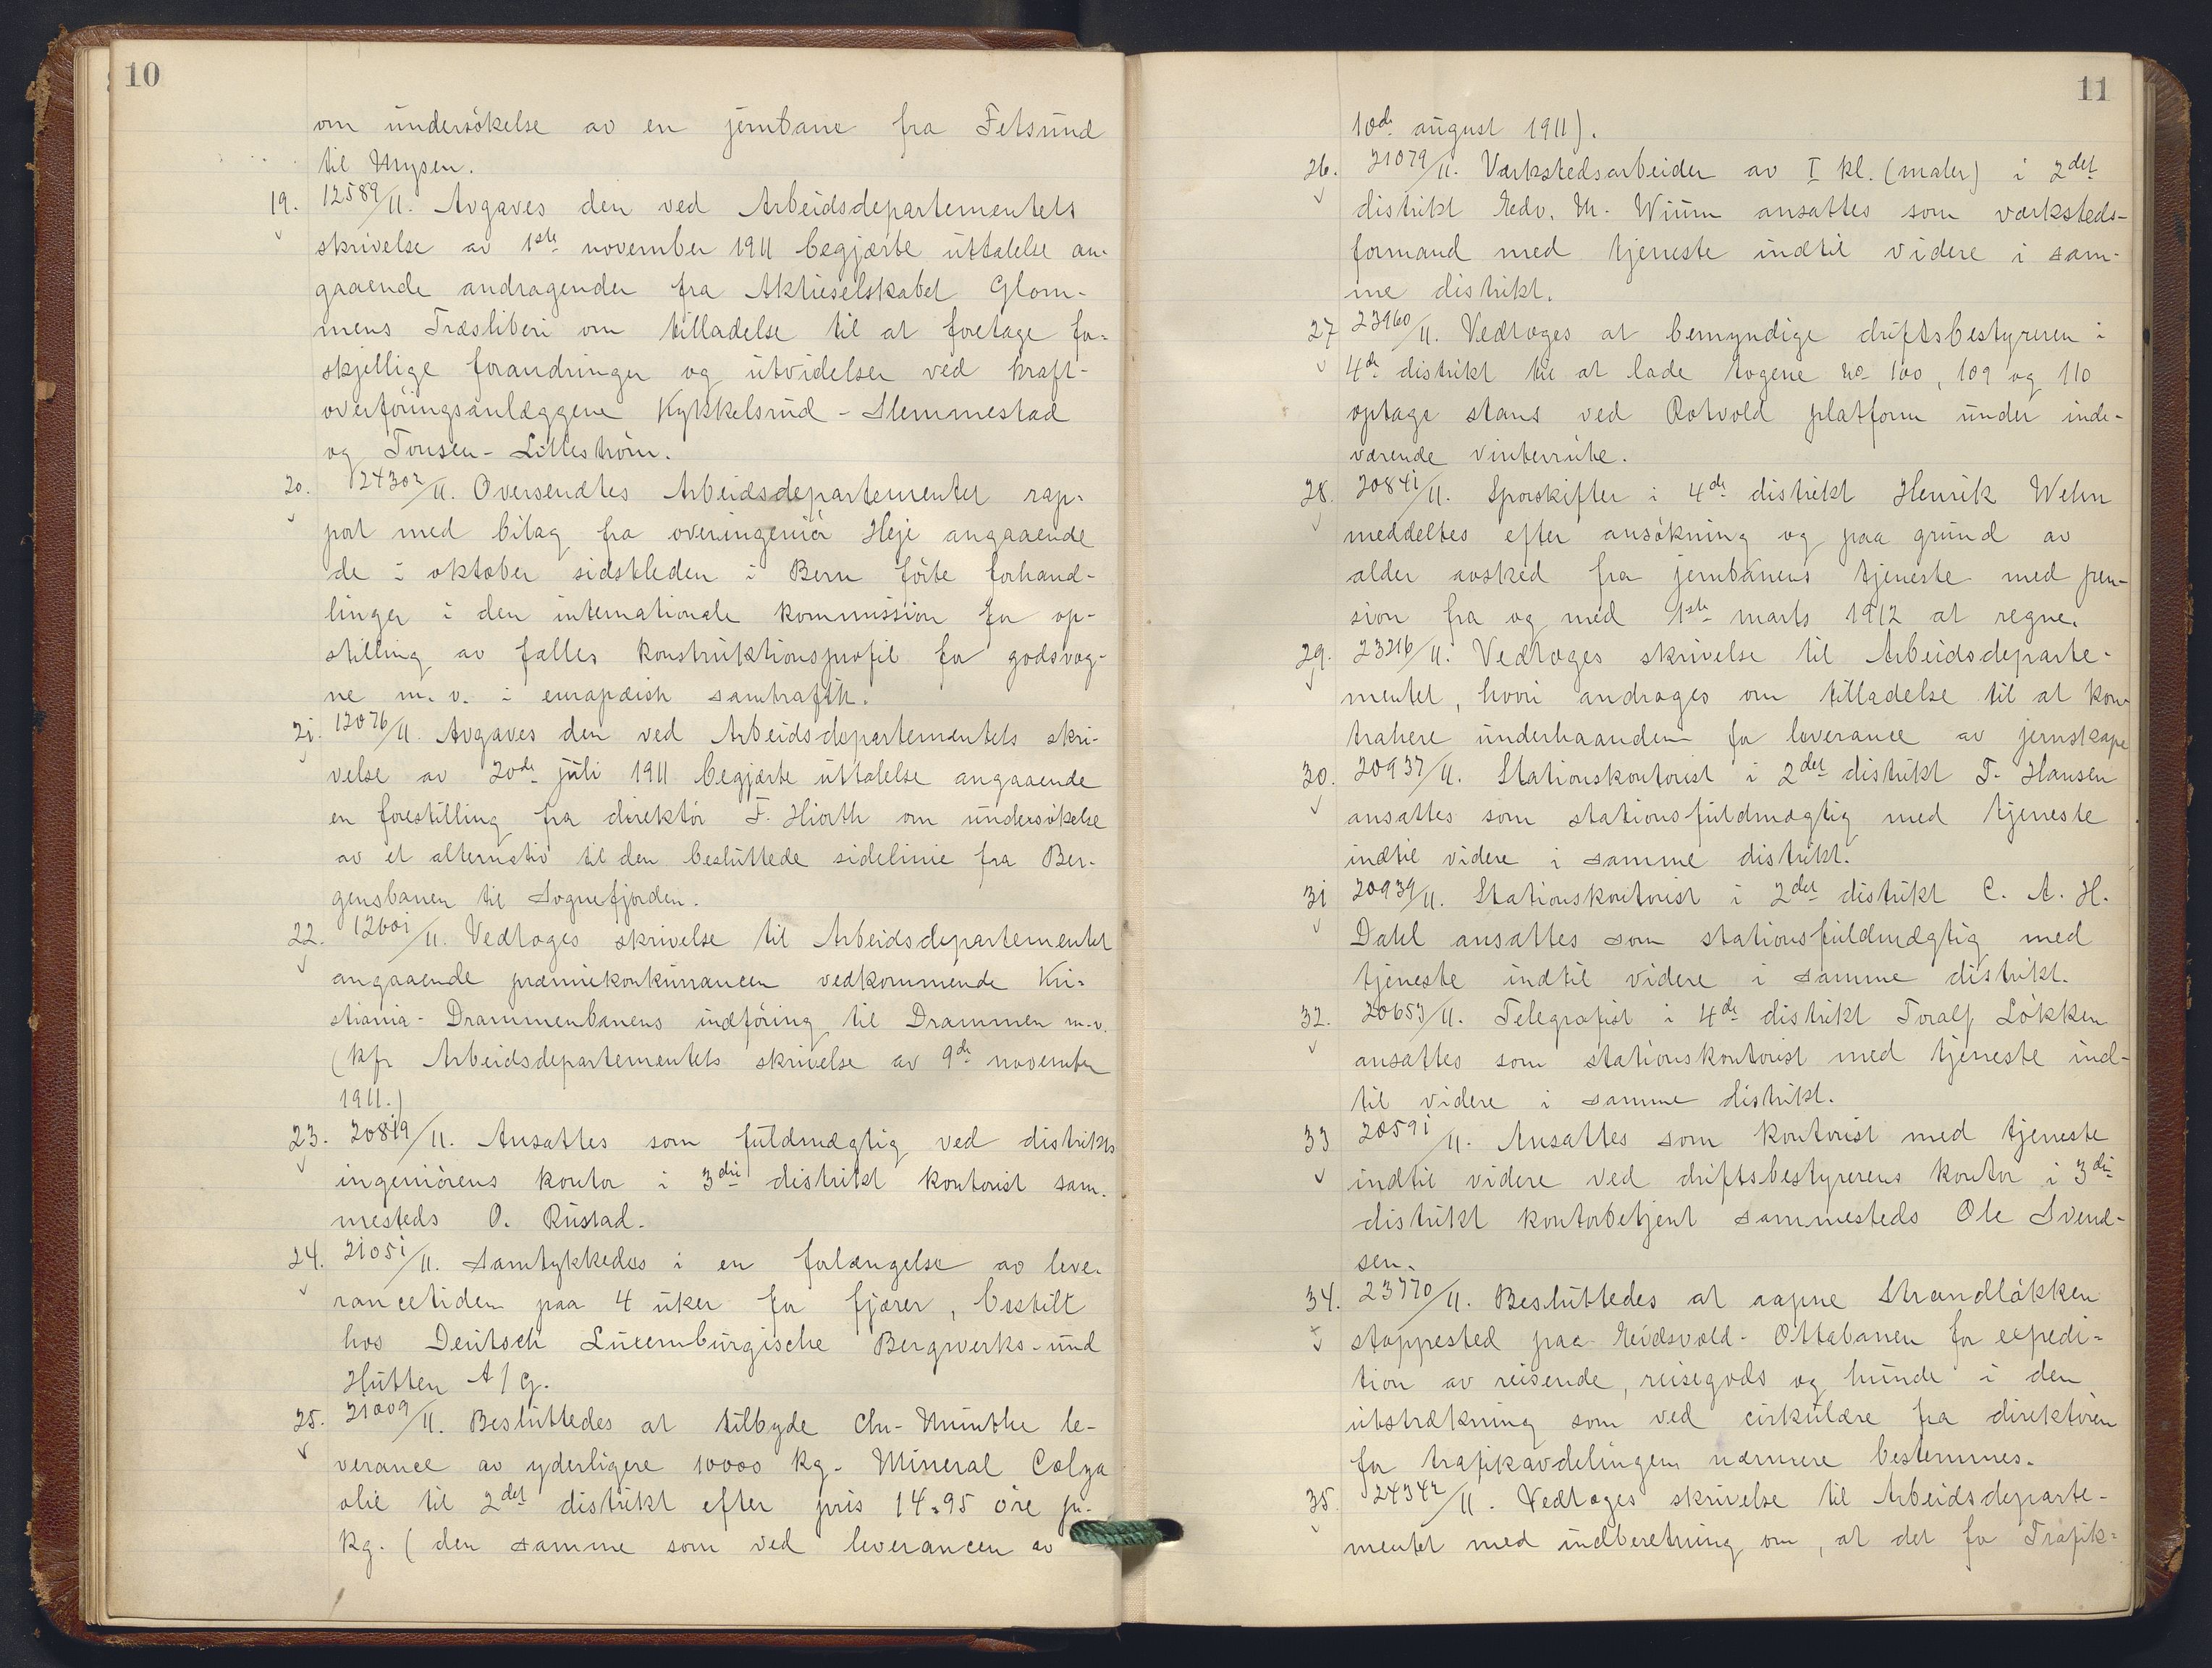 10
om undersökelse av en jernbane fra Fetsund
til Mysen.
19. 12589/11. Avgaves den ved Arbeidsdepartementets
skrivelse av 1ste november 1911 begjærte uttalelse an-
gaaende andragender fra Aktieselskabet Glom-
mens Træsliberi om tilladelse til at foretage for-
skjellige forandringer og utvidelser ved kraft-
overföringsanlæggene Kykkelsrud - Slemmestad
og Tonsen - Lilleström.
20. 24302/11. Oversendtes Arbeidsdepartementet rap-
port med bilag fra overingeniör Heje angaaende
de i oktober sidstleden i Bern förte forhand-
linger i den internationale kommission for op-
stilling av fælles konstruktionsprofil for godsvog-
ne m. v. i europæisk samtrafik.
21. 12076/11. Avgaves den ved Arbeidsdepartementets skri-
velse av 20de juli 1911 begjærte uttalelse angaaende
en forestilling fra direktör F. Hiorth om undersökelse
av et alternativ til den besluttede sidelinie fra Ber-
gensbanen til Sognefjorden.
22. 12601/11. Vedtoges skrivelse til Arbeidsdepartementet
angaaende præmiekonkurrancen vedkommende Kri-
stiania - Drammenbanens indföring til Drammen m.v.
(kfr Arbeidsdepartementets skrivelse av 9de november
1911.)
23. 20819/11. Ansattes som fuldmægtig ved distrikts
ingeniörens kontor i 3die distrikt kontorist sam-
mesteds O. Rustad.
24. 21051/11. Samtykkedes i en forlængelse av leve-
rancetiden paa 4 uker for fjærer, bestilt
hos Deutsch Luxemburgische Bergwerks- und
Hütten A/G.
25. 21009/11. Besluttedes at tilbyde Chr. Munthe le-
verance av yderligere 10000 kg. Mineral Colza
olie til 2det distrikt efter pris 14.95 öre pr.
kg. (den samme som ved leverancen av
11
10de august 1911).
26. 21079/11. Værkstedsarbeider av I kl. (maler) i 2det
distrikt Edv. M. Wium ansattes som værksteds-
formand med tjeneste indtil videre i sam-
me distrikt.
27 23960/11. Vedtoges at bemyndige driftsbestyreren i
4de distrikt til at lade togene no 100, 109 og 110
optage stans ved Rotvold platform under inde-
værende vinterrute.
28. 20841/11. Sporskifter i 4de distrikt Henrik Wehn
meddeltes efter ansökning og paa grund av
alder avsked fra jernbanens tjeneste med pen-
sion fra og med 1ste marts 1912 at regne.
29. 23216/11. Vedtoges skrivelse til Arbeidsdeparte-
mentet, hvori androges om tilladelse til at kon-
trahere underhaanden for leverance av jernskape
30. 20937/11. Stationskontorist i 2det distrikt T. Hansen
ansattes som stationsfuldmægtig med tjeneste
indtil videre i samme distrikt.
31 20939/11. Stationskontorist i 2det distrikt C. A. H.
Dahl ansattes som stationsfuldmægtig med
tjeneste indtil videre i samme distrikt.
32. 20653/11. Telegrafist i 4de distrikt Toralf Lökken
ansattes som stationskontorist med tjeneste ind-
til videre i samme distrikt.
33 20591/11. Ansattes som kontorist med tjeneste
indtil videre ved driftsbestyrerens kontor i 3die
distrikt kontorbetjent sammesteds Ole Svend-
sen.
34. 23770/11. Besluttedes at aapne Strandlökken
stoppested paa Eidsvold - Ottabanen for expedi-
tion av reisende, reisegods og hunde i den
utstrækning som ved cirkulære fra direktören
for trafikavdelingen nærmere bestemmes.
35. 24342/11. Vedtoges skrivelse til Arbeidsdeparte-
mentet med indberetning om, at det for Trafik-